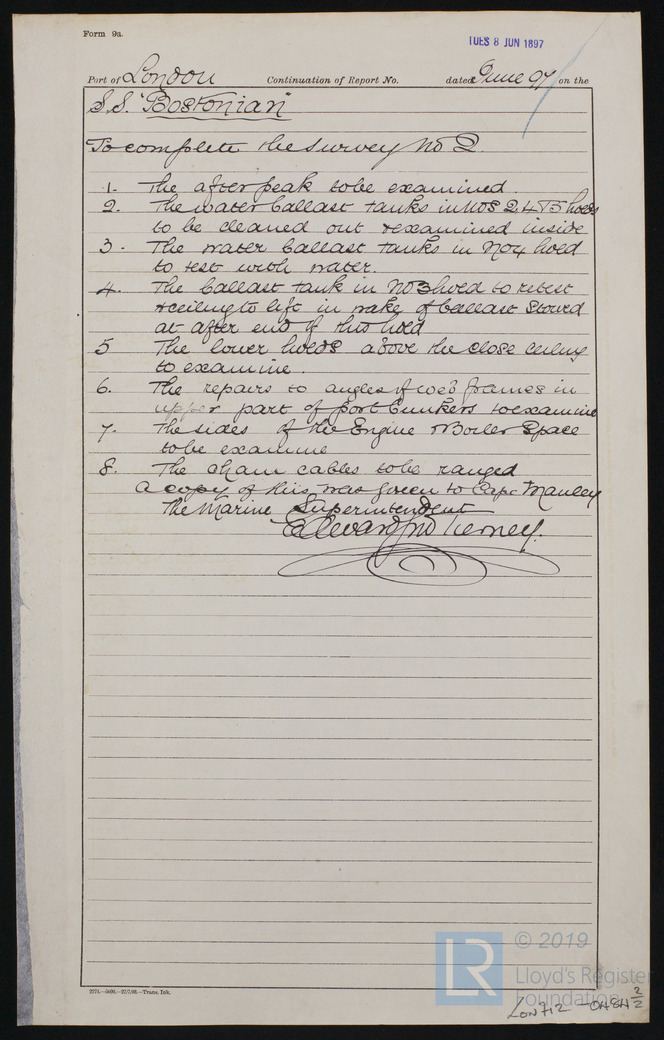 Form 9a.
TUES 8 JUN 1897
Port of London Continuation of Report No. dated June 97 on the
S.S. "Bostonian"
To complete the survey No 2.
1. The after peak to be examined.
2. The water ballast tanks in Nos 2 4 & 5 holds
to be cleaned out & examined inside
3. The water ballast tanks in No 4 hold
to test with water.
4. The ballast tank in No 3 hold to retest
& ceiling to lift in wake of ballast stowed
at after end of this hold
5 The lower holds above the close ceiling
to examine.
6. The repairs to angles of web frames in
upper part of port bunkers to examine
7. The sides of the Engine & Boiler Space
to be examine
8. The chain cables to be ranged
A copy of this was given to Capt Manley
The Marine Superintendent
Edward Jno Tierney.
Trans. Ink.
LR © 2019
Lloyd's Register
Foundation
LON712-0484 2/2